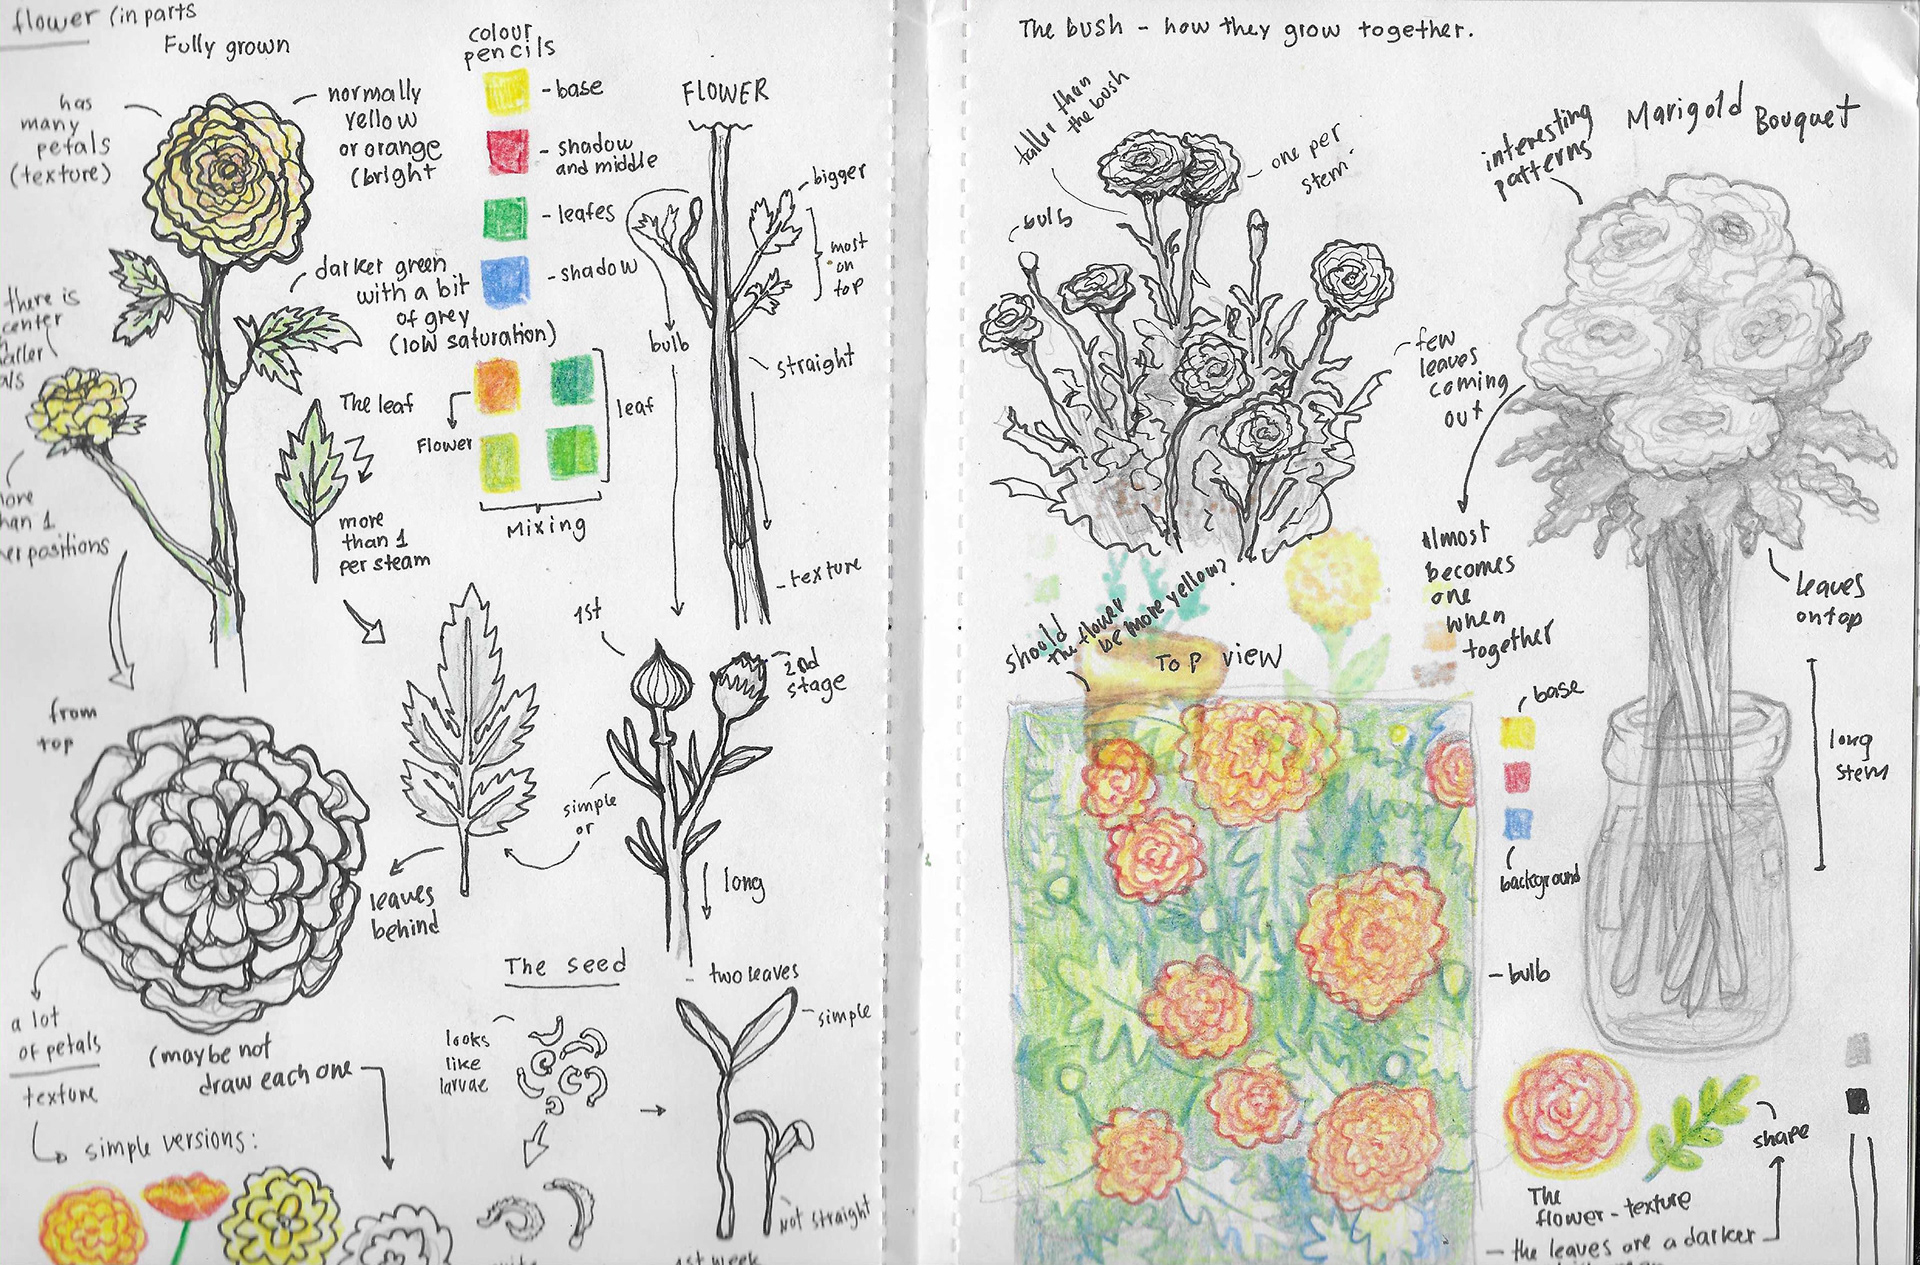 flower (in parts
Fully grown
has
many
petals
(texture)
normally
yellow
or orange
(bright
colour
pencils
- base
- shadow
and middle
- leafes
- shadow
darker green
with a bit
of grey
(low saturation)
there is
center
The leaf
more
than 1
per steam
Flower
leaf
Mixing
than 1
positions
FLOWER
bigger
most
on
top
bulb
straight
- texture
from
top
leaves
behind
a lot
of petals
texture
(maybe not
draw each one
simple versions:
1st
2nd
stage
simple
or
long
The seed
looks
like
larvae
- two leaves
- simple
Not straight
1st week
The bush - how they grow together.
taller than
the bush
- one per
stem.
bulb
few
leaves
coming
out
Almost
becomes
one
when
together
interesting
patterns
Marigold Bouquet
leaves
on top
long
stem
should
the flower
be more yellow?
Top view
base
background
- bulb
shape
The
flower - texture
- the leaves are a darker